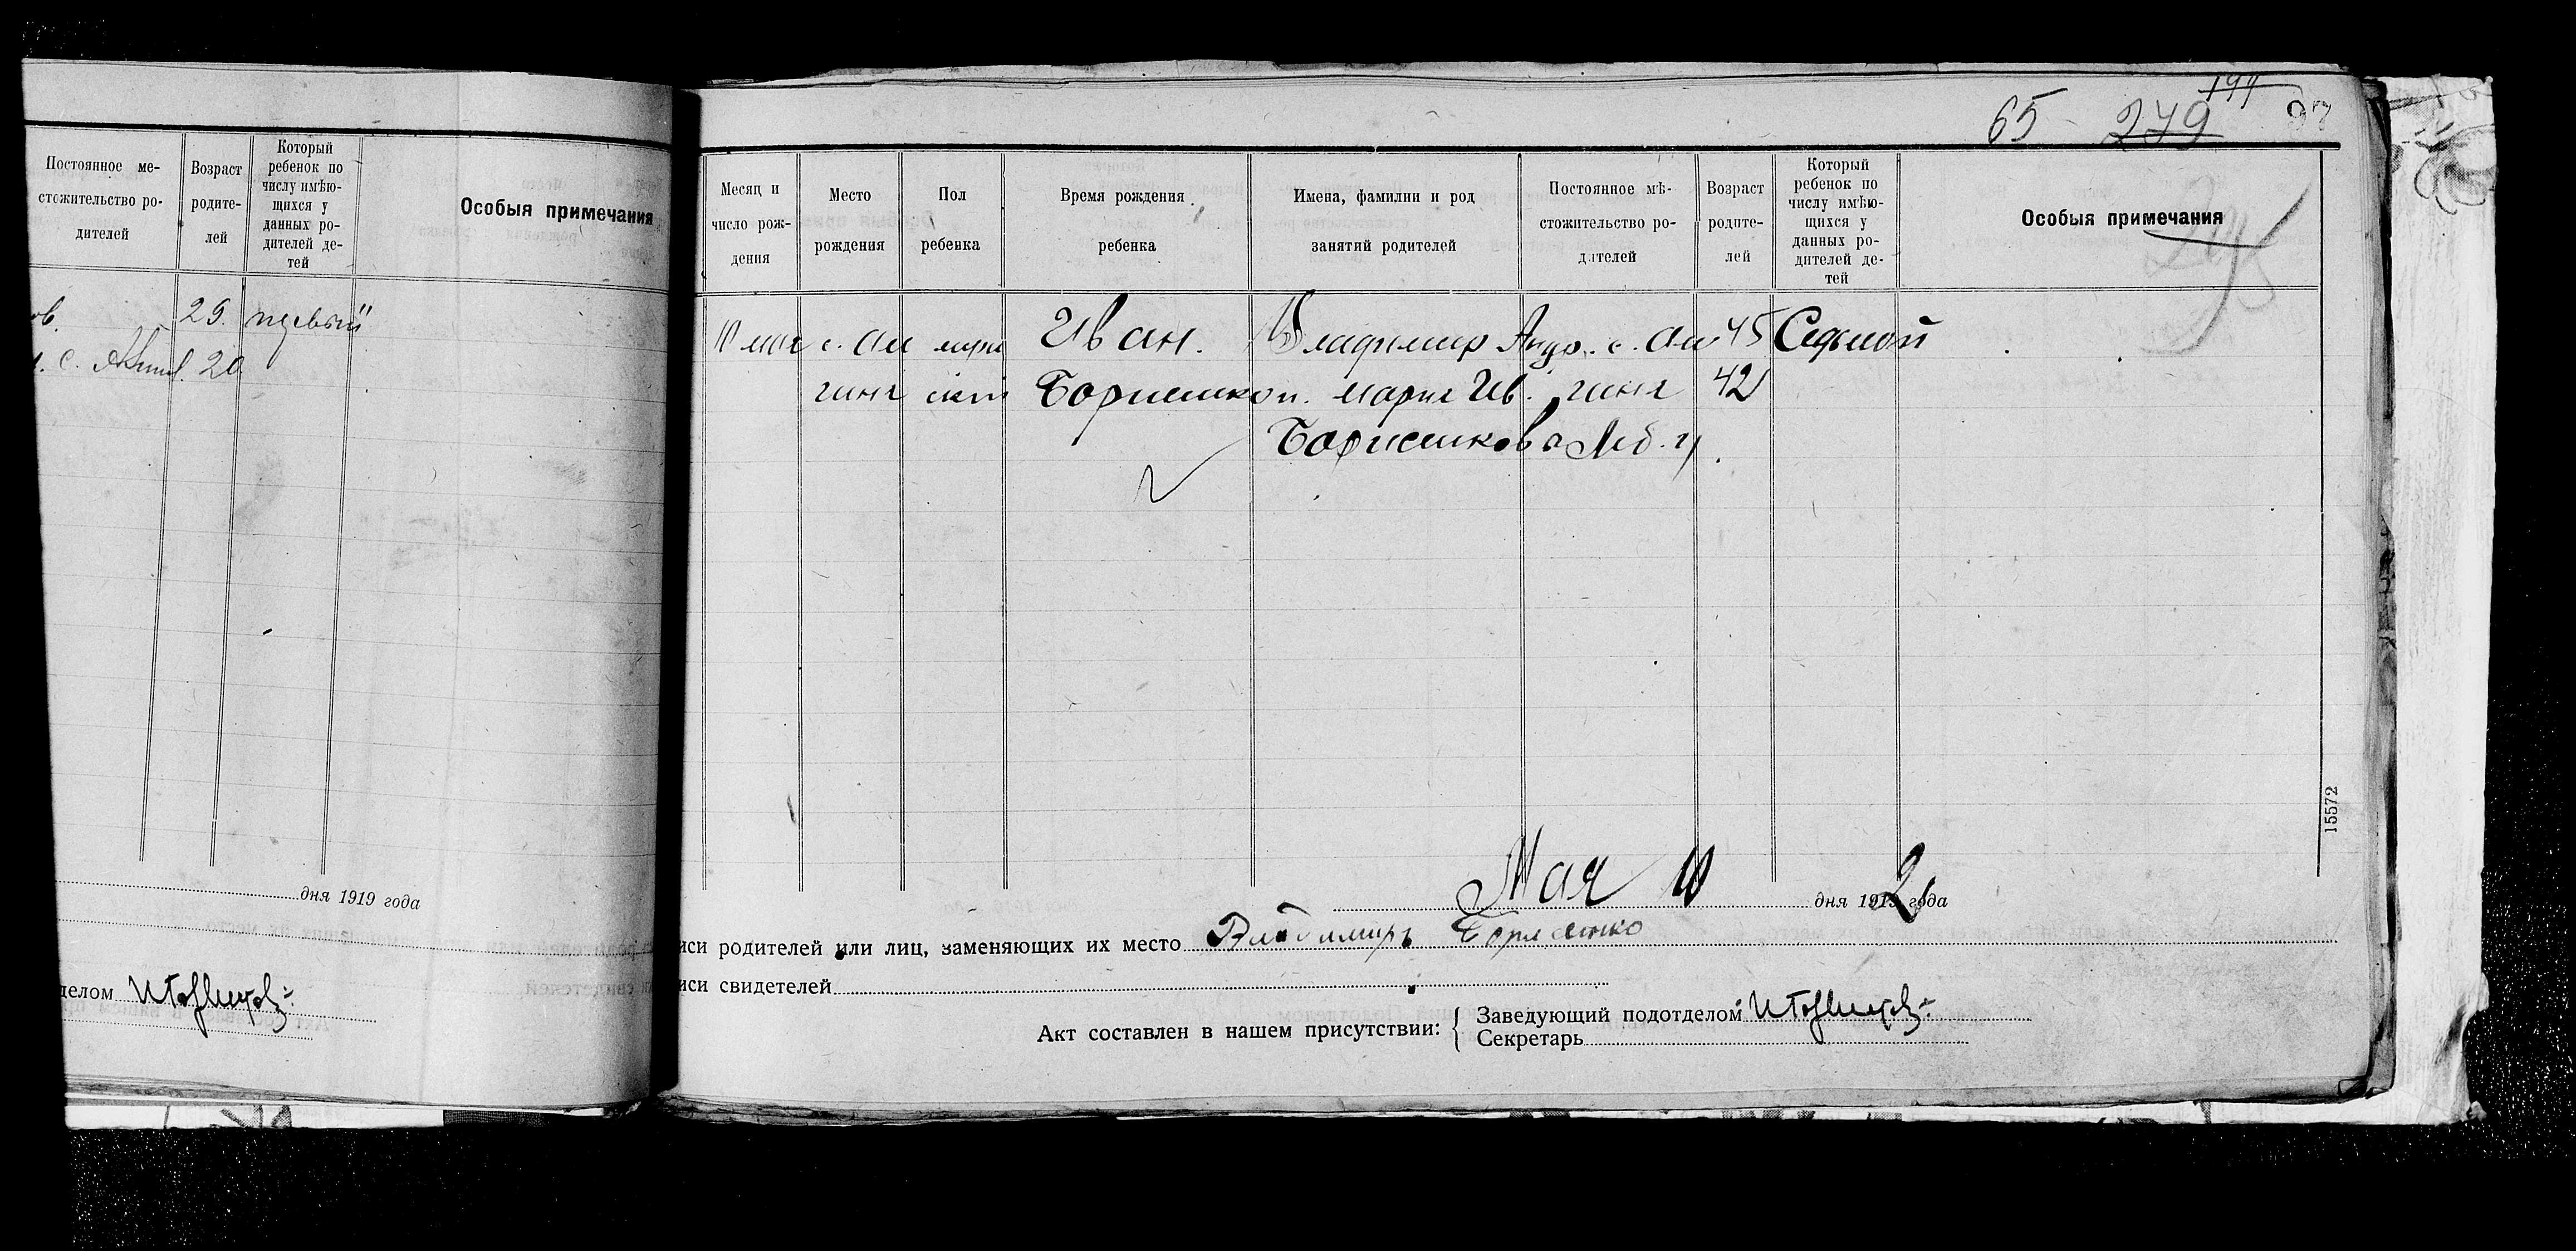 Постоянное ме-
стожительство ро-
дителей
Возраст
родите-
лей
Который
ребенок по
числу имѣю-
щихся у
данных ро-
дителей де-
тей
Особыя примечания
ов. 29. первый
с. 20
дня 1919 года
делом
65 279 199
Месяц и
число рож-
дения
Место
рождения
Пол
ребенка
Время рождения
ребенка
Имена, фамилии и род
занятий родителей
Постоянное мѣ-
стожительство ро-
дителей
Возраст
родите-
лей
Который
ребенок по
числу имѣю-
щихся у
данных ро-
дителей де-
тей
Особыя примечания
10 мая с. Ан муж Иван. Владимир Андр. с. Ан 45 Седьмой
гиня ской Мария Ив. гиня 42
15572
Мая 10 дня 1919 года
иси родителей или лиц, заменяющих их место Владимиръ
иси свидетелей
Акт составлен в нашем присутствии:
Заведующий подотделом
Секретарь